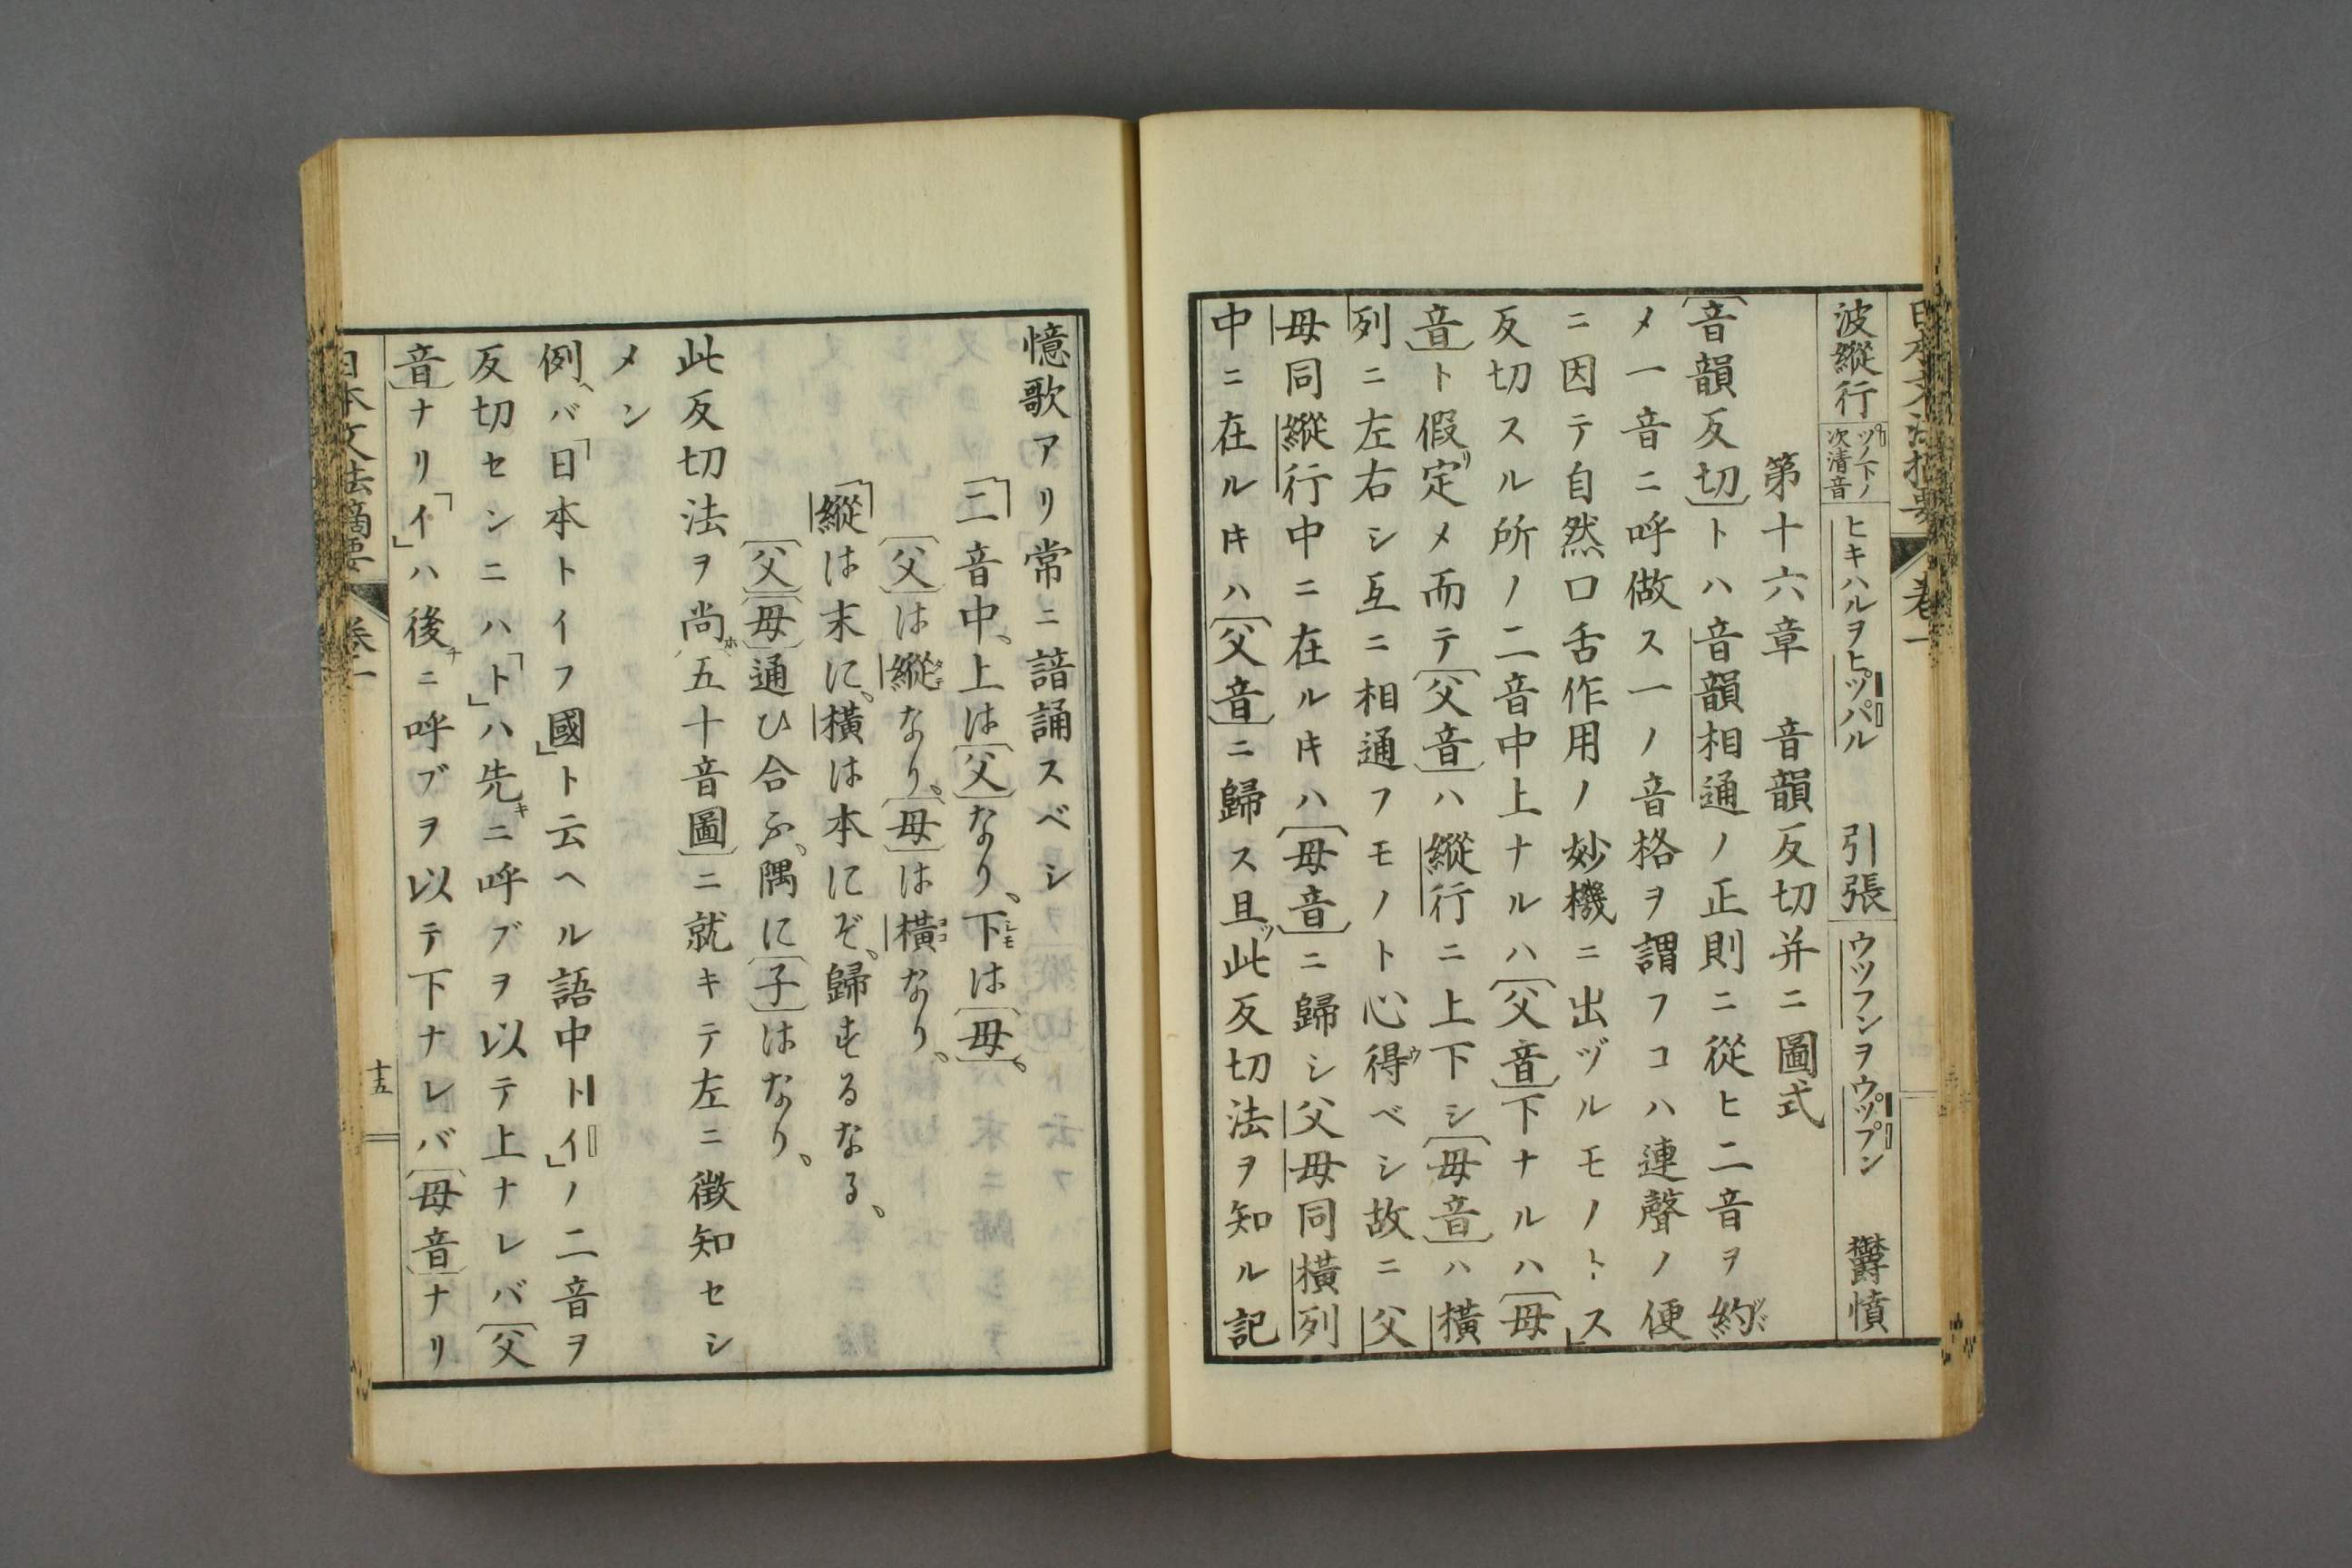 日本文法摘要 卷一
波縱行 ツノ下ノ次清音 ヒキハルヲヒツパル 引張 ウツフンヲウツプン 鬱憤
第十六章 音韻反切并ニ圖式
〔音韻反切〕トハ音韻相通ノ正則ニ從ヒ二音ヲ約
メ一音ニ呼做ス一ノ音格ヲ謂フコハ連聲ノ便
ニ因テ自然口舌作用ノ妙機ニ出ヅルモノトス」
反切スル所ノ二音中上ナルハ〔父音〕下ナルハ〔母
音〕ト假定メ而テ〔父音〕ハ縱行ニ上下シ〔母音〕ハ橫
列ニ左右シ互ニ相通フモノト心得ベシ故ニ父
母同縱行中ニ在ルキハ〔母音〕ニ歸シ父母同橫列
中ニ在ルキハ〔父音〕ニ歸ス且此反切法ヲ知ル記
憶歌アリ常ニ諳誦スベシ
「〔二音中、上は〔父〕なり、下は〔母〕、
〔父〕は縱なり、〔母〕は橫なり、
「〔縱は末に、橫は本にぞ、歸するなる、
〔父〕〔母〕通ひ合ふ、隅に〔子〕はなり、
此反切法ヲ尚五十音圖〕ニ就キテ左ニ徵知セシ
メン
例バ「日本トイフ國」ト云ヘル語中トイ」ノ二音ヲ
反切センニハ「ト」ハ先ニ呼ブヲ以テ上ナレバ〔父
音〕ナリ「イ」ハ後ニ呼ブヲ以テ下ナレバ〔母音〕ナリ
日本文法摘要 卷一 十五